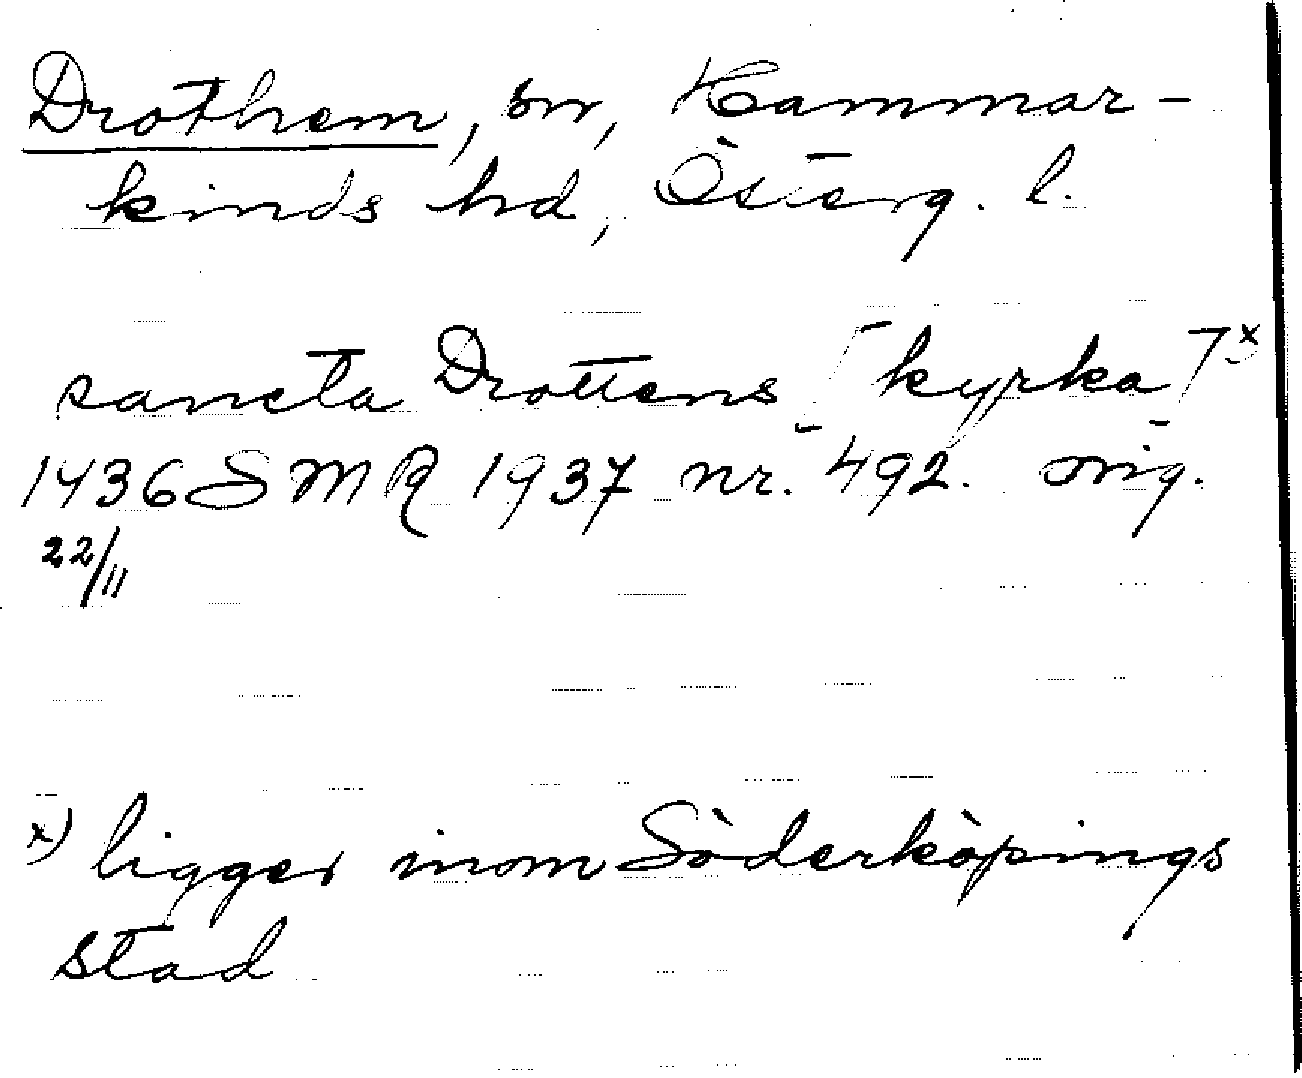 Drothem, sn, Hammar-
kinds hd, Österg. l.
sancta Drottens [kyrka] x)
1436 SMR 1937 nr. 492. orig.
22/11
x) ligger inom Söderköpings
stad